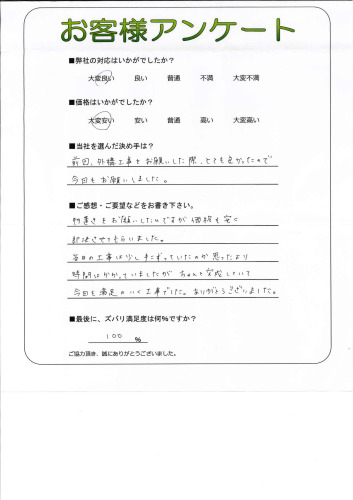 お客様アンケート
■弊社の対応はいかがでしたか?
大変良い 良い 普通 不満 大変不満
■価格はいかがでしたか?
大変安い 安い 普通 高い 大変高い
■当社を選んだ決め手は?
前回、外構工事をお願いした際、とても良かったので
今回もお願いしました。
■ご感想・ご要望などをお書き下さい。
物置きをお願いしたんですが価格も安く
対決させてもらいました。
毎日の工事は少してこずっていたのか思ったより
時間はかかっていましたが ちゃんと完成していて
今回も満足のいく工事でした。ありがとうございました。
■最後に、ズバリ満足度は何%ですか?
100 %
ご協力頂き、誠にありがとうございました。